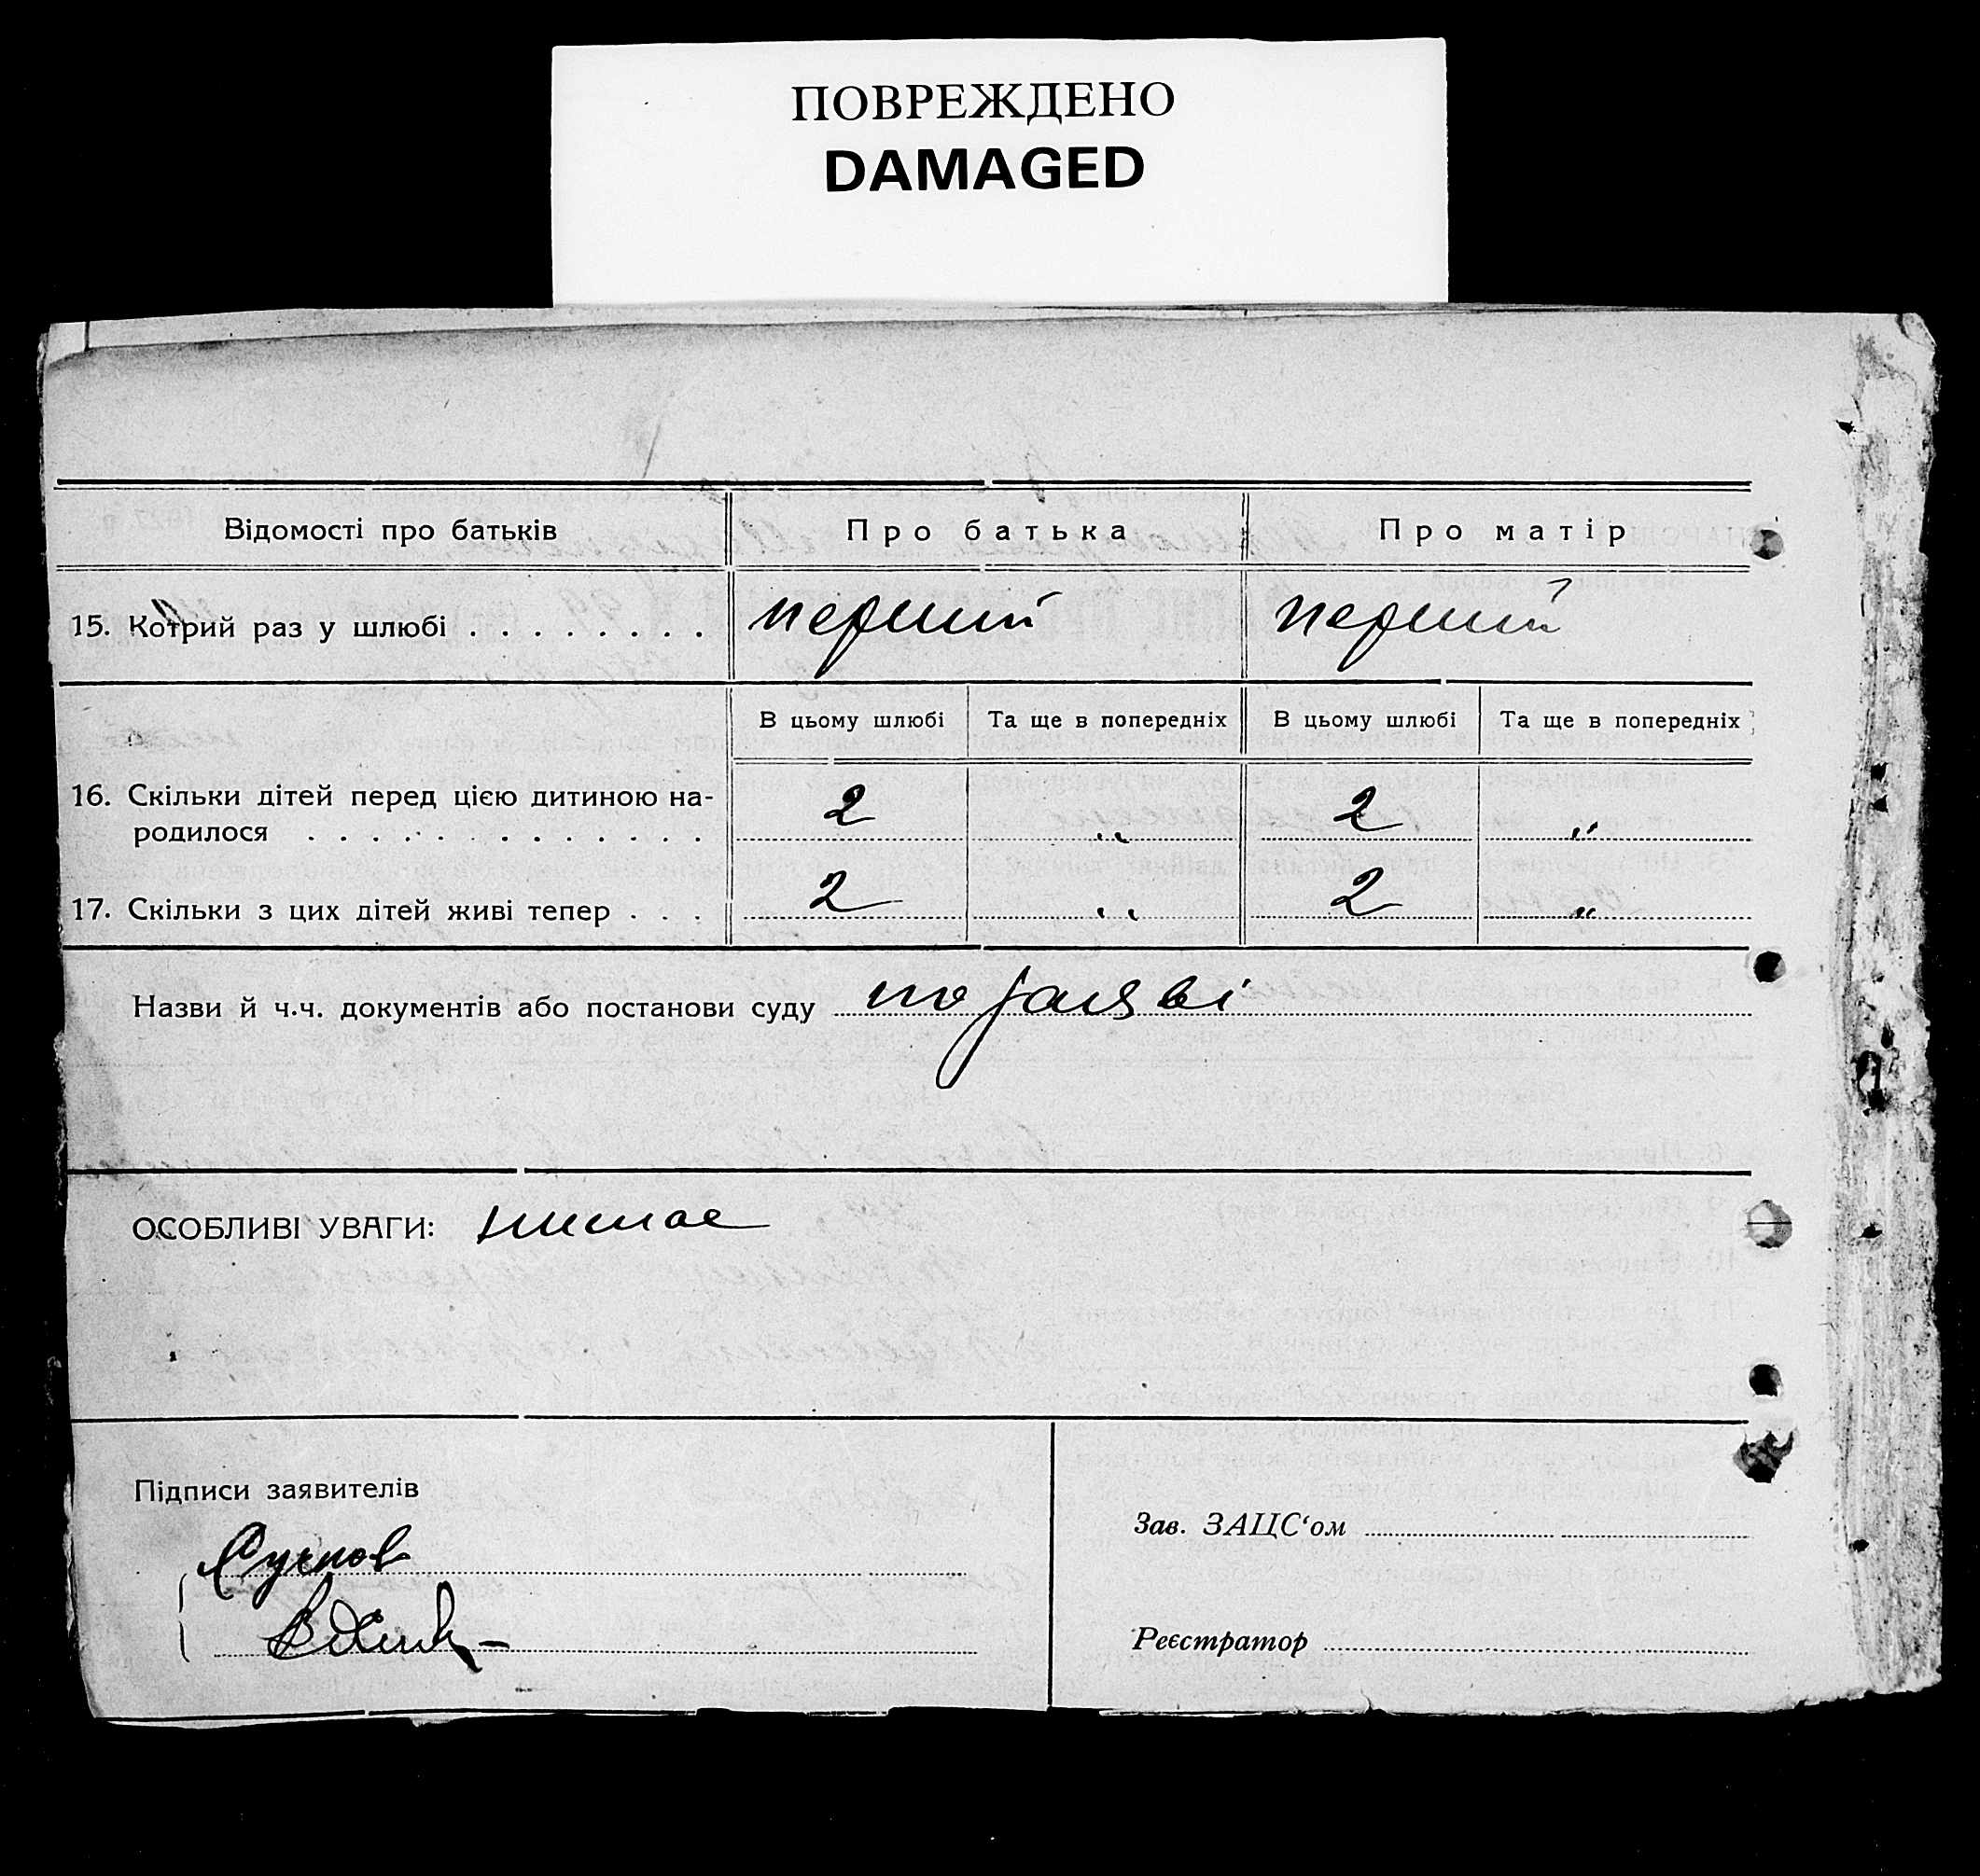 ПОВРЕЖДЕНО
DAMAGED
Відомості про батьків
Про батька
Про матір
15. Котрий раз у шлюбі . . . . . . . .
перший
перший
В цьому шлюбі
Та ще в попередніх
В цьому шлюбі
Та ще в попередніх
16. Скільки дітей перед цією дитиною на-
родилося . . . . . . . . . . . . . .
2
„
2
„
17. Скільки з цих дітей живі тепер . . .
2
„
2
„
Назви й ч.ч. документів або постанови суду по заяві
ОСОБЛИВІ УВАГИ: немає
Підписи заявителів
Зав. ЗАЦС‘ом
Реєстратор